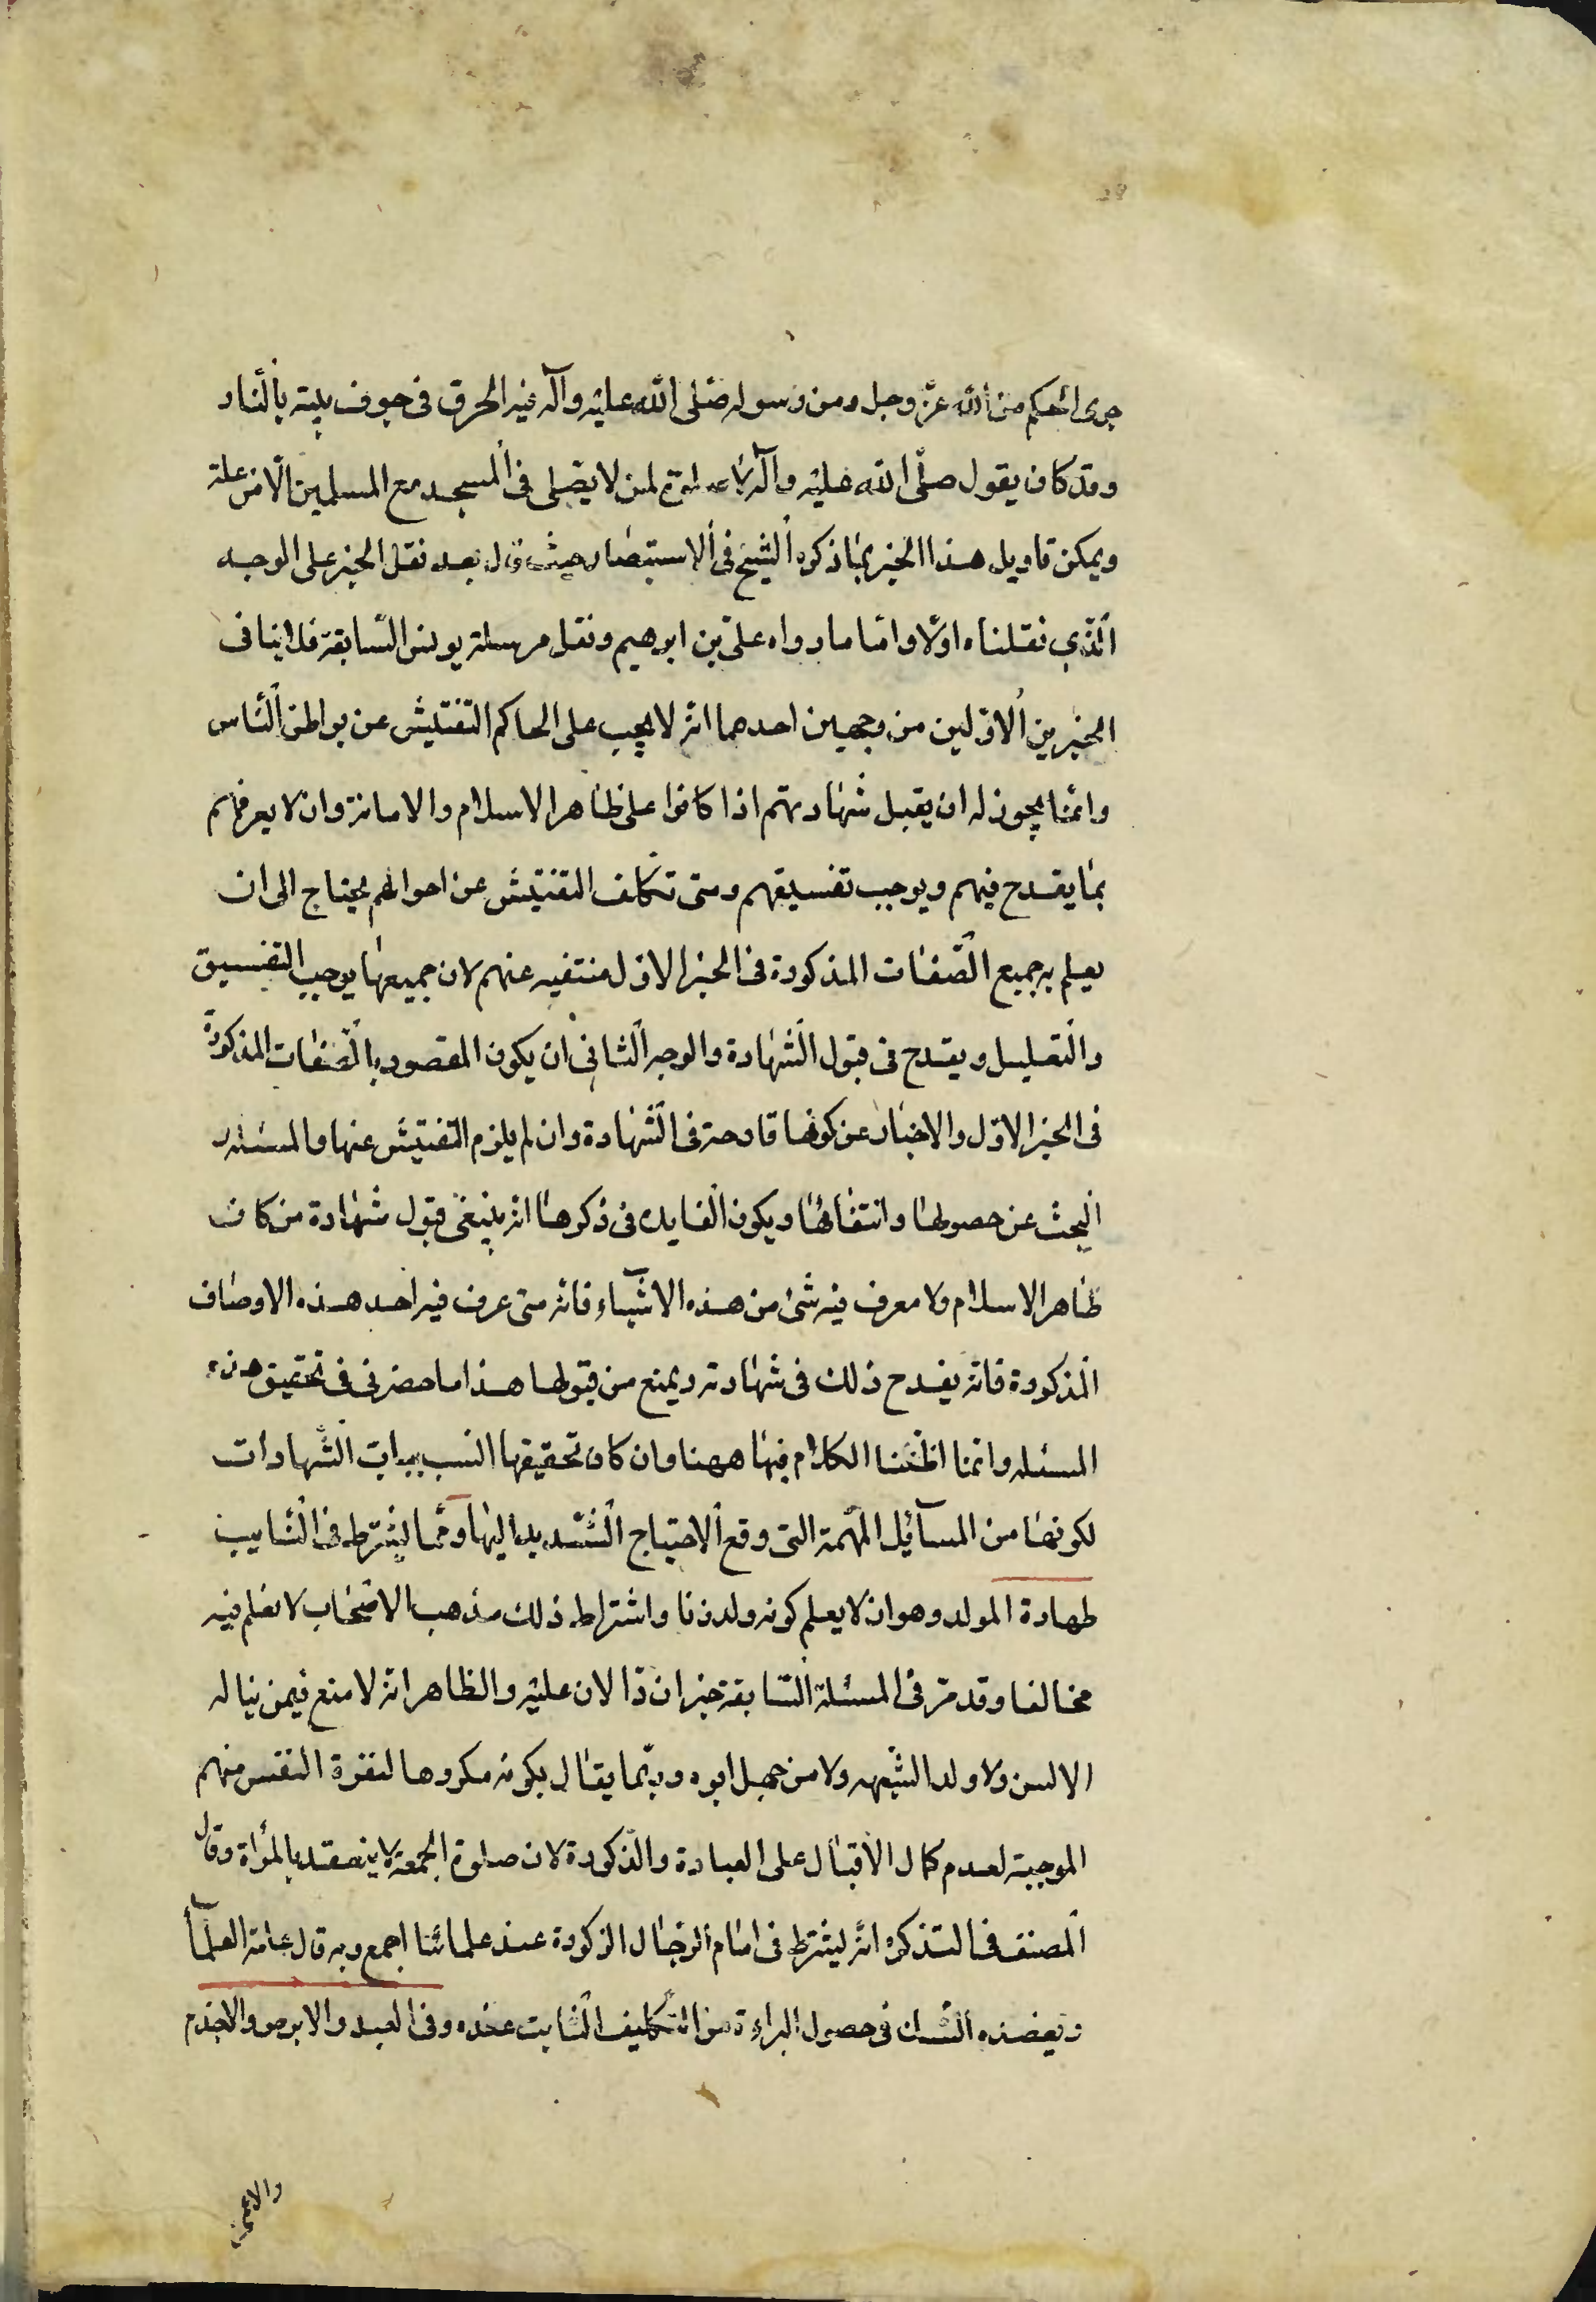 جرى الحكم من الله عزّ وجل ومن رسوله صلّى الله عليه وآله فيه الحرق في جوف بيته بالنار
وقد كان يقول صلّى الله عليه وآله لا صلوة لمن لا يصلى فى المسجد مع المسلمين الّا من علة
ويمكن تاويل هذا الخبر بما ذكره الشيخ فى الاستبصار حيث قال بعد نقل الخبر على الوجه
الّذي نقلناه اوّلا وامّا ما رواه علىّ بن ابرهيم ونقل مرسلة يونس السّابقة فلا ينافى
الخبرين الاوّلين من وجهين احدهما انه لا يجب على الحاكم التفتيش عن بواطن النّاس
وانّما يجوز له ان يقبل شهادتهم اذا كانوا على ظاهر الاسلام والامانة وان لا يعرفهم
بما يقدح فيهم ويوجب تفسيقهم ومتى تكلف التفتيش عن احوالهم يحتاج الى ان
يعلم به جميع الصّفات المذكورة فى الخبر الاول منتفيه عنهم لان جميعها يوجب التفسيق
والتضليل ويقدح فى قبول الشّهادة والوجه الثانى ان يكون المقصود بالصّفات المذكورة
فى الخبر الاوّل والاخبار عن كونها قادحة فى الشّهادة وان لم يلزم التفتيش عنها والمسئله
البحث عن حصولها وانتفائها ويكون الفايده فى ذكرها انه ينبغى قبول شهادة من كان
ظاهر الاسلام ولا معرف فيه شئ من هذه الاشياء فانه متى عرف فيه احد هذه الاوصاف
المذكورة فانه يقدح ذلك فى شهادته ويمنع من قبولها هذا ما حضرنى فى تحقيق هذه
المسئله وانّما اظننا الكلام فيها ههنا وان كان تحقيقها انسب بباب الشّهادات
لكونها من المسآئل المهمة التى وقع الاحتياج الشّديد اليها وممّا يشترط فى النّايب
طهارة المولد وهو ان لا يعلم كونه ولد زنا واشتراط ذلك مذهب الاصحاب لا نعلم فيه
مخالفا وقد مرّ فى المسئلة السّابقة خبران دالان عليه والظاهر انه لا منع فيمن يناله
الالسن ولا ولد الشّبهه ولا من جهل ابوه وربّما يقال بكونه مكروها لنفرة النفس منهم
الموجبة لعدم كمال الاقبال على العبادة والذّكورة لان صلوة الجمعة لا ينعقد بالمراة وقال
المصنف فى التذكره انّه يشترط فى امام الرّجال الذكورة عند علمائنا اجمع وبه قال عامة العلمآء
ويعضده الشّك فى حصول البراءة من التّكليف الثّابت عنده وفى العبد والابرص والاجذم
والاعمى